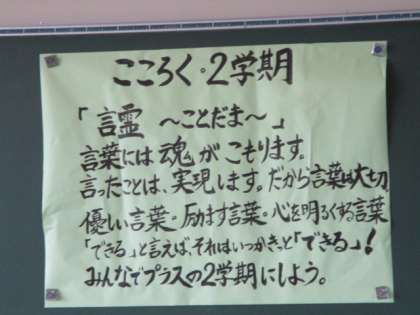 こころく・2学期
「言霊 ～ことだま～」
言葉には魂がこもります。
言ったことは、実現します。だから言葉は大切
優しい言葉・励ます言葉・心を明るくする言葉
「できる」と言えば、それはいつかきっと「できる」!
みんなでプラスの2学期にしよう。